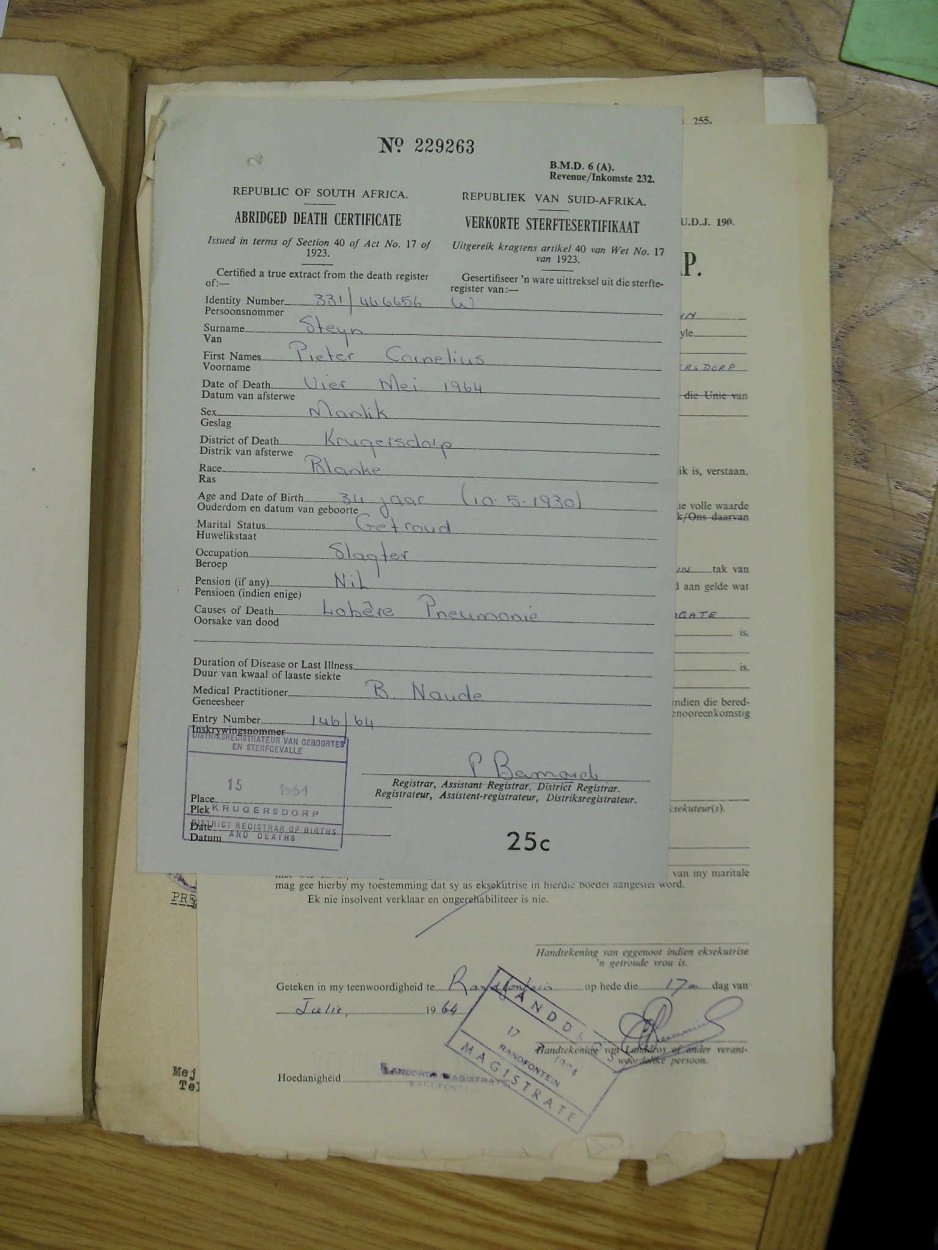 Nº 229263
B.M.D. 6 (A).
Revenue/Inkomste 232.
REPUBLIC OF SOUTH AFRICA.
ABRIDGED DEATH CERTIFICATE
Issued in terms of Section 40 of Act No. 17 of
1923.
Certified a true extract from the death register
of:—
REPUBLIEK VAN SUID-AFRIKA.
VERKORTE STERFTESERTIFIKAAT
Uitgereik kragtens artikel 40 van Wet No. 17
van 1923.
Gesertifiseer 'n ware uittreksel uit die sterfte-
register van:—
Identity Number 331/446656 W
Persoonsnommer
Surname Steyn
Van
First Names Pieter Cornelius
Voorname
Date of Death Vier Mei 1964
Datum van afsterwe
Sex Manlik
Geslag
District of Death Krugersdorp
Distrik van afsterwe
Race Blanke
Ras
Age and Date of Birth 34 jaar (10.5.1930)
Ouderdom en datum van geboorte
Marital Status Getroud
Huwelikstaat
Occupation Slagter
Beroep
Pension (if any) Nil
Pensioen (indien enige)
Causes of Death Lobêre Pneumonie
Oorsake van dood
Duration of Disease or Last Illness
Duur van kwaal of laaste siekte
Medical Practitioner B. Naude
Geneesheer
Entry Number 146/64
Inskrywingsnommer
DISTRIKSREGISTRATEUR VAN GEBOORTES
EN STERFGEVALLE
15 1964
Place
Plek KRUGERSDORP
Date DISTRICT REGISTRAR OF BIRTHS
Datum AND DEATHS
P Barnard
Registrar, Assistant Registrar, District Registrar.
Registrateur, Assistent-registrateur, Distriksregistrateur.
25c
255.
U.D.J. 190.
P.
yle
RSDORP
die Unie van
ik is, verstaan.
ie volle waarde
k/Ons daarvan
tak van
d aan gelde wat
OGATE
is.
is.
indien die bered-
enooreenkomstig
ksekuteur(s).
van my maritale
mag gee hierby my toestemming dat sy as eksekutrise in hierdie boedel aangestel word.
Ek nie insolvent verklaar en ongerehabiliteer is nie.
Handtekening van eggenoot indien eksekutrise
'n getroude vrou is.
Geteken in my teenwoordigheid te Randfontein op hede die 17e dag van
Julie, 1964
LANDDROS
17 7 1964
RANDFONTEIN
MAGISTRATE
Handtekening van Landdros of ander verant-
woordelike persoon.
Hoedanigheid LANDDROS MAGISTRATE
RANDFONTEIN
PRS
Mej
Tel